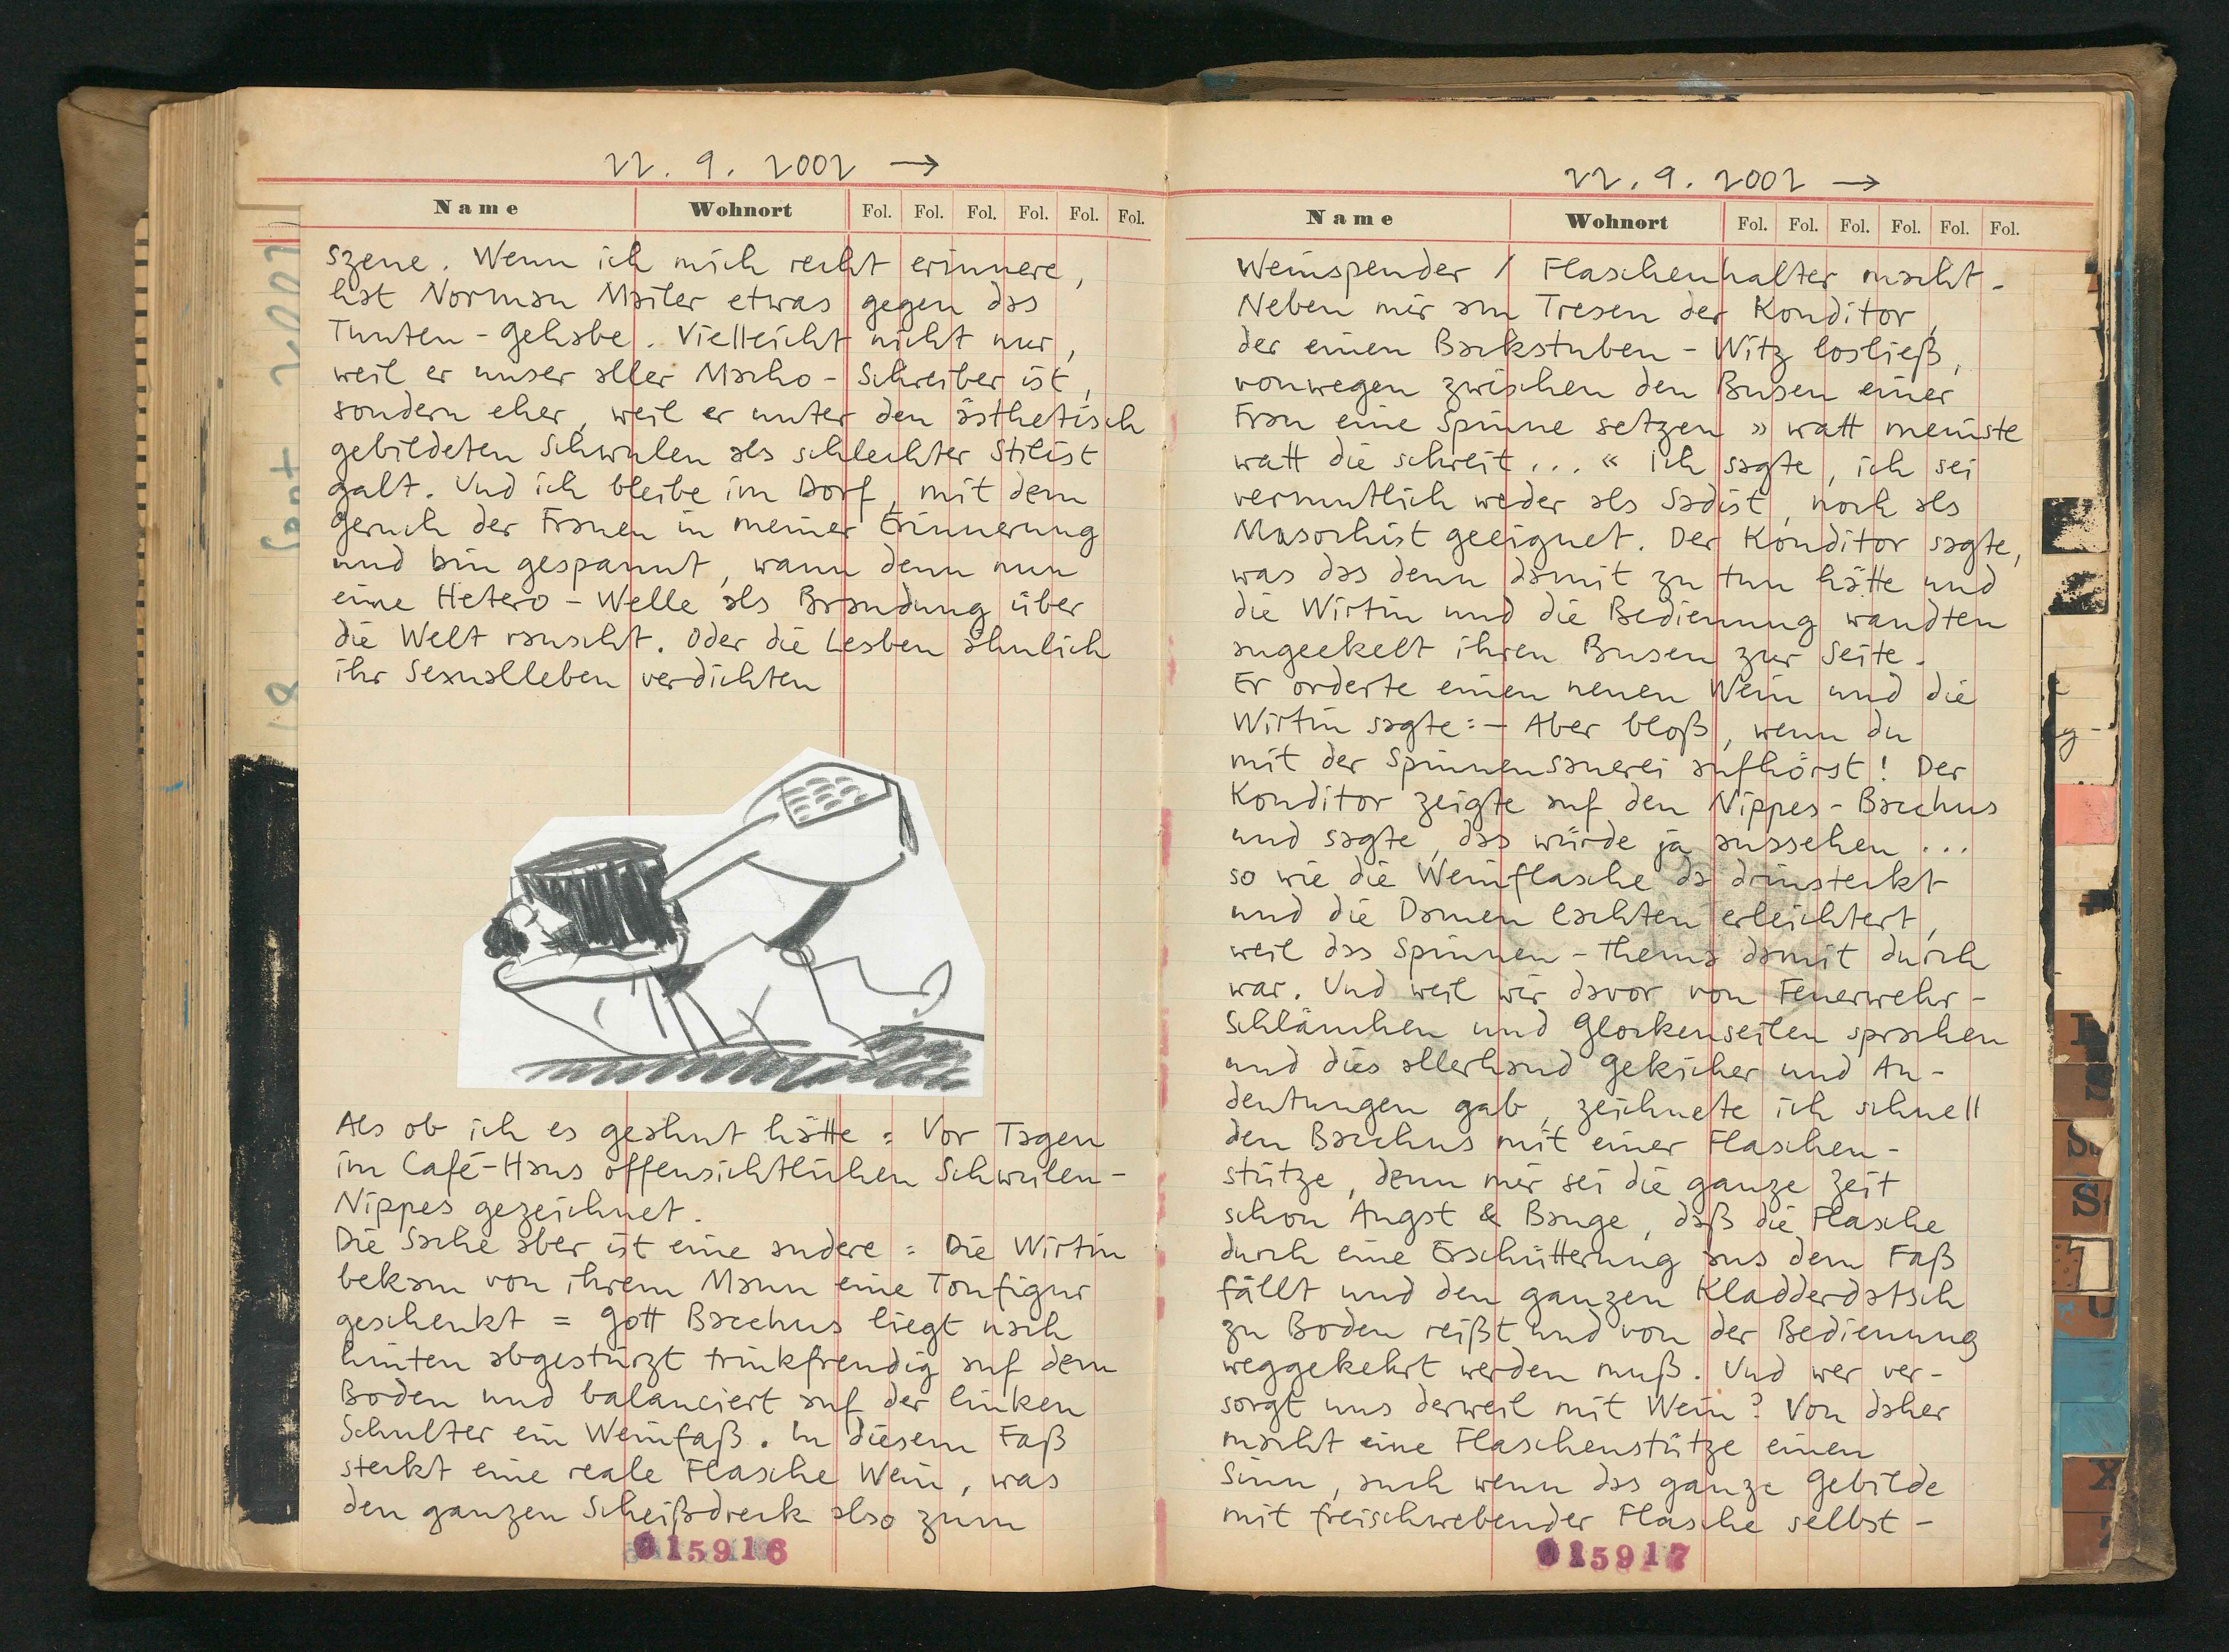 22. 9. 2002 →
Name Wohnort Fol. Fol. Fol. Fol. Fol. Fol.
szene. Wenn ich mich recht erinnere,
hat Norman Mailer etwas gegen das
Tunten-Gehabe. Vielleicht nicht nur,
weil er unser aller Macho-Schreiber ist,
sondern eher, weil er unter den ästhetisch
gebildeten Schwulen als schlechter Stilist
galt. Und ich bleibe im Dorf, mit dem
Geruch der Frauen in meiner Erinnerung
und bin gespannt, wann denn nun
eine Hetero-Welle als Brandung über
die Welt rauscht. Oder die Lesben ähnlich
ihr Sexualleben verdichten
Als ob ich es geahnt hätte: Vor Tagen
im Café-Haus offensichtlichen Schwulen-
Nippes gezeichnet.
Die Sache aber ist eine andere: Die Wirtin
bekam von ihrem Mann eine Tonfigur
geschenkt = Gott Bacchus liegt nach
hinten abgestürzt trinkfreudig auf dem
Boden und balanciert auf der linken
Schulter ein Weinfaß. In diesem Faß
steckt eine reale Flasche Wein, was
den ganzen Scheißdreck also zum
015916
22. 9. 2002 →
Name Wohnort Fol. Fol. Fol. Fol. Fol. Fol.
Weinspender / Flaschenhalter macht.
Neben mir am Tresen der Konditor,
der einen Backstuben-Witz losließ,
vonwegen zwischen den Busen einer
Frau eine Spinne setzen » watt meinste
watt die schreit... « Ich sagte, ich sei
vermutlich weder als Sadist, noch als
Masochist geeignet. Der Konditor sagte,
was das denn damit zu tun hätte und
die Wirtin und die Bedienung wandten
angeekelt ihren Busen zur Seite.
Er orderte einen neuen Wein und die
Wirtin sagte: – Aber bloß, wenn du
mit der Spinnensauerei aufhörst! Der
Konditor zeigte auf den Nippes-Bacchus
und sagte, das würde ja aussehen ...
so wie die Weinflasche da drinsteckt
und die Damen lachten erleichtert,
weil das Spinnen-Thema damit durch
war. Und weil wir davor von Feuerwehr-
Schläuchen und Glockenseilen sprachen
und dies allerhand Gekicher und An-
deutungen gab, zeichnete ich schnell
den Bacchus mit einer Flaschen-
stütze, denn mir sei die ganze Zeit
schon Angst & Bange, daß die Flasche
durch eine Erschütterung aus dem Faß
fällt und den ganzen Kladderdatsch
zu Boden reißt und von der Bedienung
weggekehrt werden muß. Und wer ver-
sorgt uns derweil mit Wein? Von daher
macht eine Flaschenstütze einen
Sinn, auch wenn das ganze Gebilde
mit freischwebender Flasche selbst-
015917